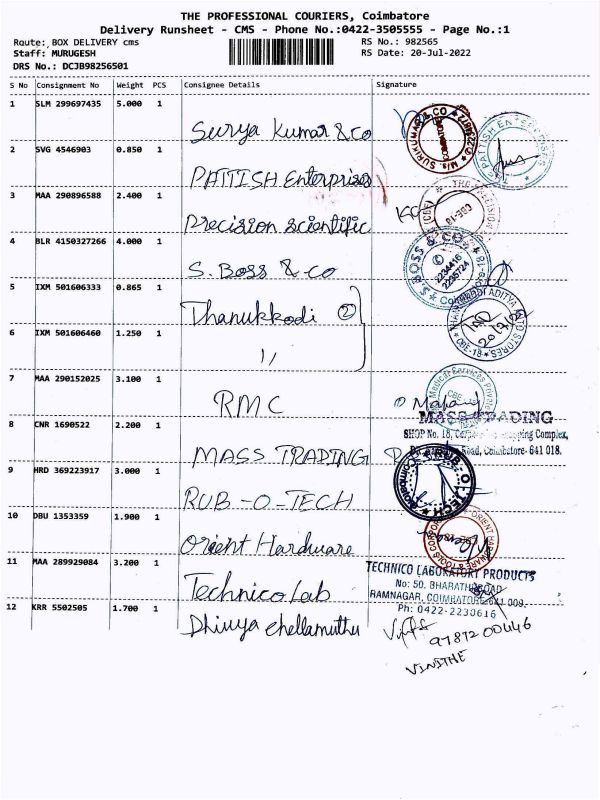 THE PROFESSIONAL COURIERS, Coimbatore
Delivery Runsheet - CMS - Phone No.:0422-3505555 - Page No.:1
Route: BOX DELIVERY cms RS No.: 982565
Staff: MURUGESH RS Date: 20-Jul-2022
DRS No.: DCJB98256501
S No Consignment No Weight PCS Consignee Details Signature
1 SLM 299697435 5.000 1 Surya Kumar & co
2 SVG 4546903 0.850 1 PATTISH Enterprises
3 MAA 290896588 2.400 1 Precision scientific
4 BLR 4150327266 4.000 1 S. Boss & co
5 IXM 501606333 0.865 1 Thanukkodi 2
6 IXM 501606460 1.250 1 ,,
7 MAA 290152025 3.100 1 RMC
8 CNR 1690522 2.200 1 MASS TRADING
9 HRD 369223917 3.000 1 RUB-O-TECH
10 DBU 1353359 1.900 1 Orient Hardware
11 MAA 289929084 3.200 1 Technico Lab
12 KRR 5502505 1.700 1 Dhivya chellamuthu
PATTISH ENTERPRISES
THE PRECISION
(CBE)
CBE-18
S. BOSS & CO
2234416
2235724
ADITYA
STORES
CBE-18
Medical Services Private
MASS TRADING
SHOP No. 18, Shopping Complex,
Road, Coimbatore- 641 018.
ORIENT HARDWARE & TOOLS CORPORATION
TECHNICO LABORATORY PRODUCTS
No: 50, BHARATHI ROAD
RAMNAGAR, COIMBATORE-641 009.
Ph: 0422-2230616
97872 00446
VINITHE